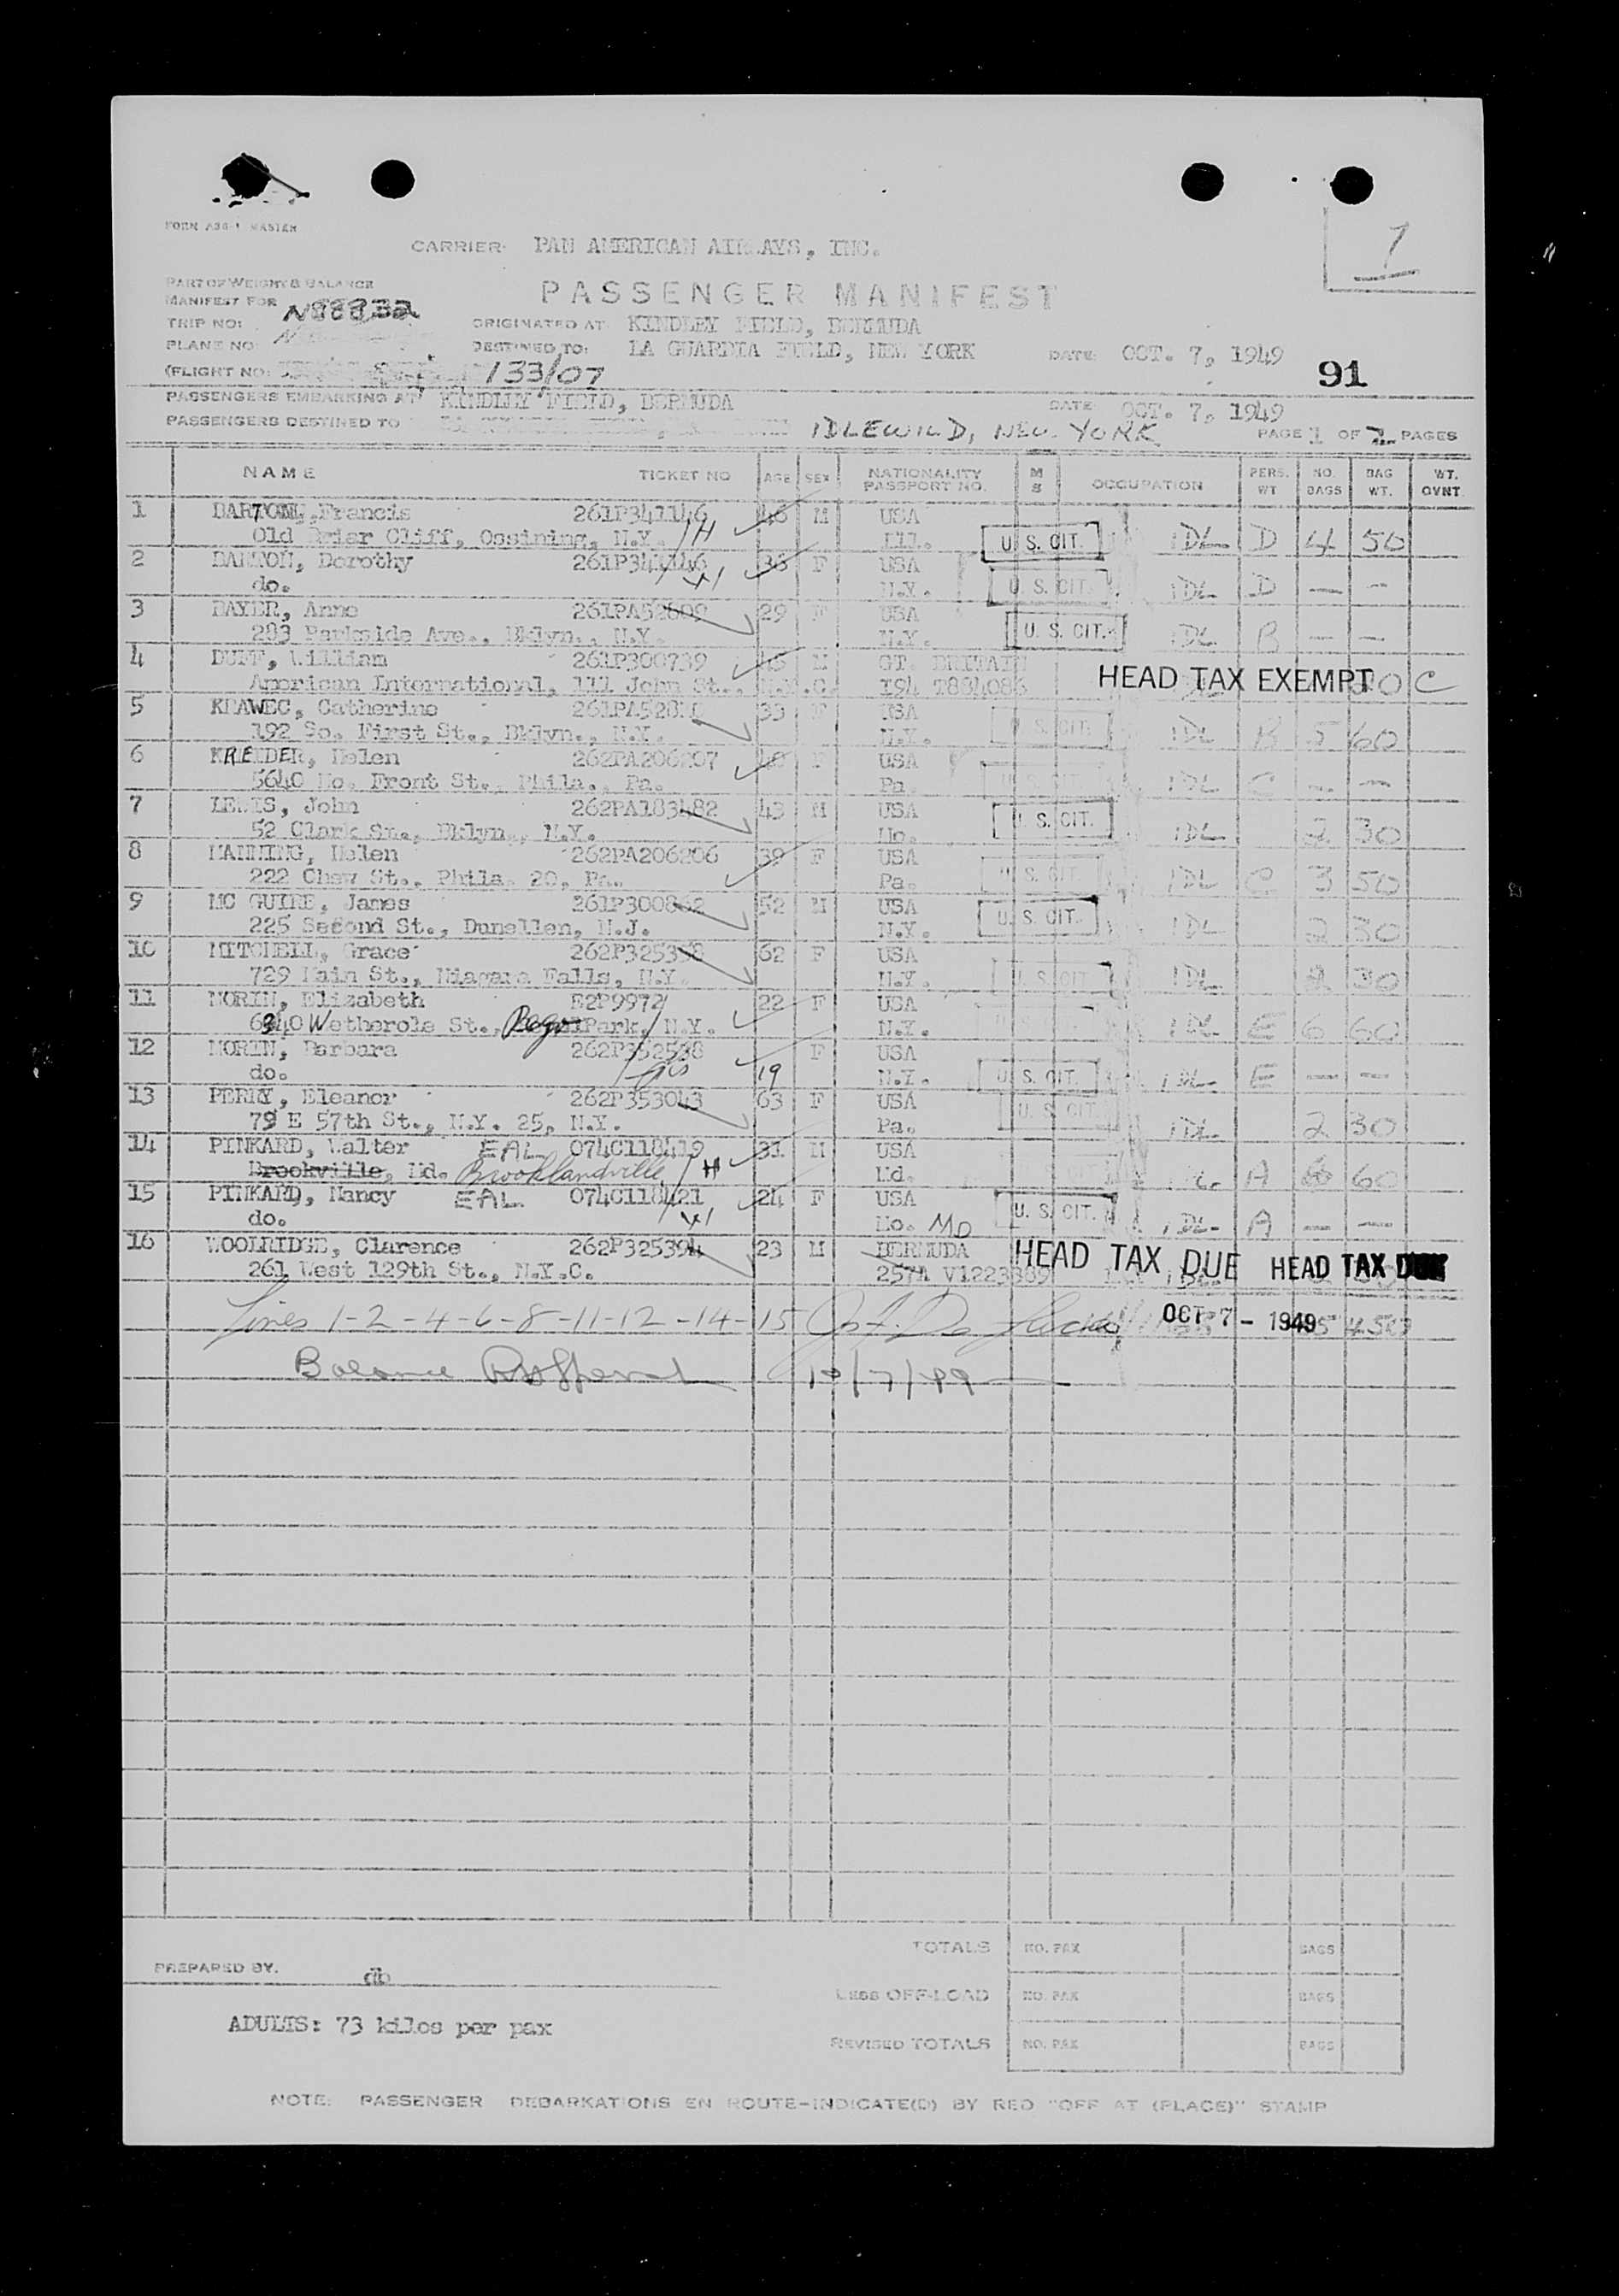 FORM ASG-1 MASTER
1
CARRIER: PAN AMERICAN AIRWAYS, INC.
PART OF WEIGHT & BALANCE
MANIFEST FOR
PASSENGER MANIFEST
TRIP NO: N88832
ORIGINATED AT: KINDLEY FIELD, BERMUDA
PLANE NO:
DESTINED TO: LA GUARDIA FIELD, NEW YORK DATE: OCT. 7, 1949
(FLIGHT NO: 133/07
91
PASSENGERS EMBARKING AT KINDLEY FIELD, BERMUDA DATE OCT. 7, 1949
PASSENGERS DESTINED TO IDLEWILD, NEW YORK PAGE 1 OF PAGES
NAME TICKET NO AGE SEX NATIONALITY PASSPORT NO. M S OCCUPATION PERS. WT NO. BAGS BAG WT. WT. OVNT.
1 BARTON, Francis 261P341146 46 M USA
Old Briar Cliff, Ossining, N.Y. H Ill. U. S. CIT. IDL D 4 50
2 BARTON, Dorothy 261P341146 36 F USA
do. W N.Y. U. S. CIT. IDL D — —
3 BAYER, Anne 261PA52609 29 F USA
283 Parkside Ave., Bklyn., N.Y. N.Y. U. S. CIT. IDL B — —
4 DUFF, William 261P300739 45 M GT. BRITAIN
American International, 111 John St., N.Y.C. I94 T884086 HEAD TAX EXEMPT C
5 KRAWEC, Catherine 33 F USA
192 So. First St., Bklyn., N.Y. N.Y. U. S. CIT. IDL B 5 60
6 KREIDER, Helen 262PA206207 F USA
5640 No. Front St., Phila., Pa. Pa. U. S. CIT. IDL C — —
7 LEWIS, John 262PA183482 43 M USA
52 Clark St., Bklyn., N.Y. Mo. U. S. CIT. IDL 2 30
8 MANNING, Helen 262PA206206 39 F USA
222 Chew St., Phila. 20, Pa. Pa. U. S. CIT. IDL C 3 50
9 MC GUIRE, James 261P300862 52 M USA
225 Second St., Dunellen, N.J. N.Y. U. S. CIT. IDL 2 30
10 MITCHELL, Grace 262P325398 62 F USA
729 Main St., Niagara Falls, N.Y. N.Y. U. S. CIT. IDL 2 30
11 MORIN, Elizabeth E2P9972 22 F USA
6340 Wetherole St., Rego Park, N.Y. N.Y. IDL E 6 60
12 MORIN, Barbara 262P352508 F USA
do. 19 N.Y. U. S. CIT. IDL E — —
13 PERRY, Eleanor 262P353043 63 F USA
79 E 57th St., N.Y. 25, N.Y. Pa. U. S. CIT. IDL 2 30
14 PINKARD, Walter EAL 074C118419 31 M USA
Brookville, Md. Brooklandville H Md. A 6 60
15 PINKARD, Nancy EAL 074C118421 24 F USA
do. W Mo. MO U. S. CIT. IDL A — —
16 WOOLRIDGE, Clarence 262P325394 23 M BERMUDA HEAD TAX DUE HEAD TAX DUE
261 West 129th St., N.Y.C. 257A V1223389
Lines 1-2-4-6-8-11-12-14-15 OCT 7 - 1949
Balance 10/7/49
TOTALS NO. PAX BAGS
PREPARED BY. db
LESS OFF-LOAD NO. PAX BAGS
ADULTS: 73 kilos per pax
REVISED TOTALS NO. PAX BAGS
NOTE: PASSENGER DEBARKATIONS EN ROUTE-INDICATE(D) BY RED "OFF AT (PLACE)" STAMP